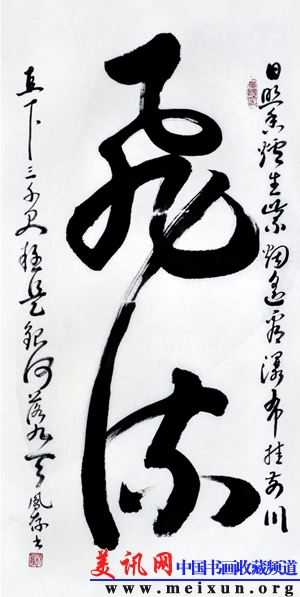 日照香爐生紫烟遥看瀑布挂前川
飛流
直下三千尺疑是銀河落九天
美讯网 中国书画收藏频道
www.meixun.org